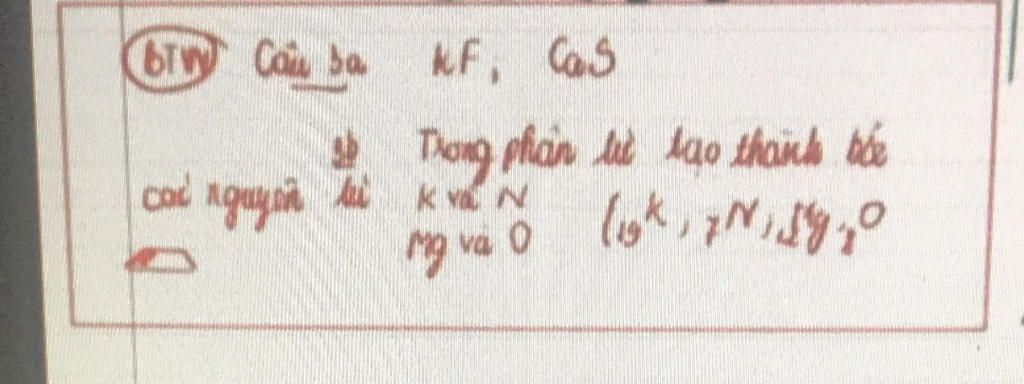 BTVN Câu 3a KF, CaS
3b Trong phân tử tạo thành bởi
các nguyên tử K và N
Mg và O (₁₉K, ₇N, Mg, ₈O